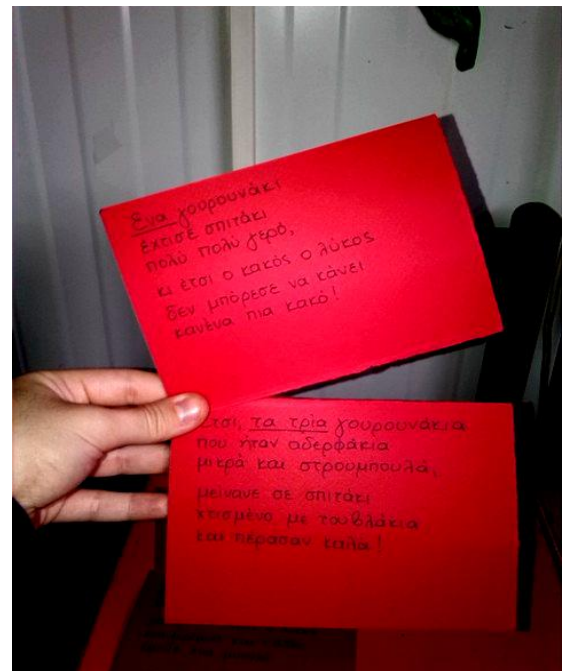 Ένα γουρουνάκι
έχτισε σπιτάκι
πολύ πολύ γερό,
κι έτσι ο κακός ο λύκος
δεν μπόρεσε να κάνει
κανένα πια κακό!
Έτσι, τα τρία γουρουνάκια
που ήταν αδερφάκια
μικρά και στρουμπουλά,
μείνανε σε σπιτάκι
χτισμένο με τουβλάκια
και πέρασαν καλά!